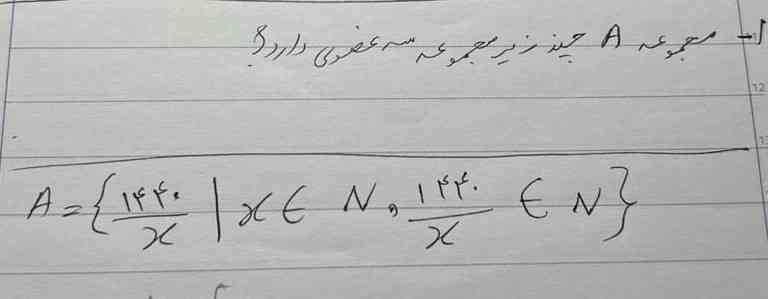 ۱- مجموعه A چند زیر مجموعه سه عضوی دارد؟
A = {۱۴۴۰/x | x ∈ N, ۱۴۴۰/x ∈ N}